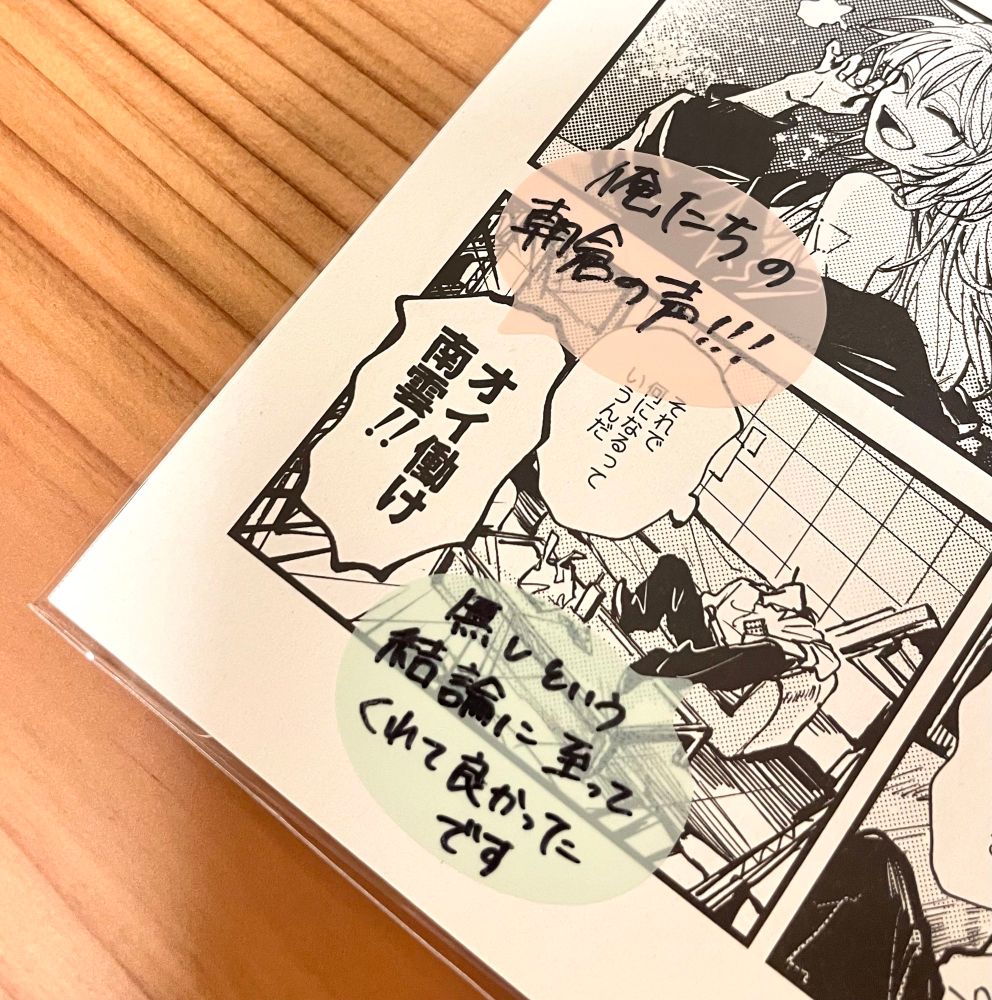 俺たちの
朝倉の声!!!
それで
何になるって
いうんだ
オイ働け
南雲!!
無しという
結論に至って
くれて良かった
です